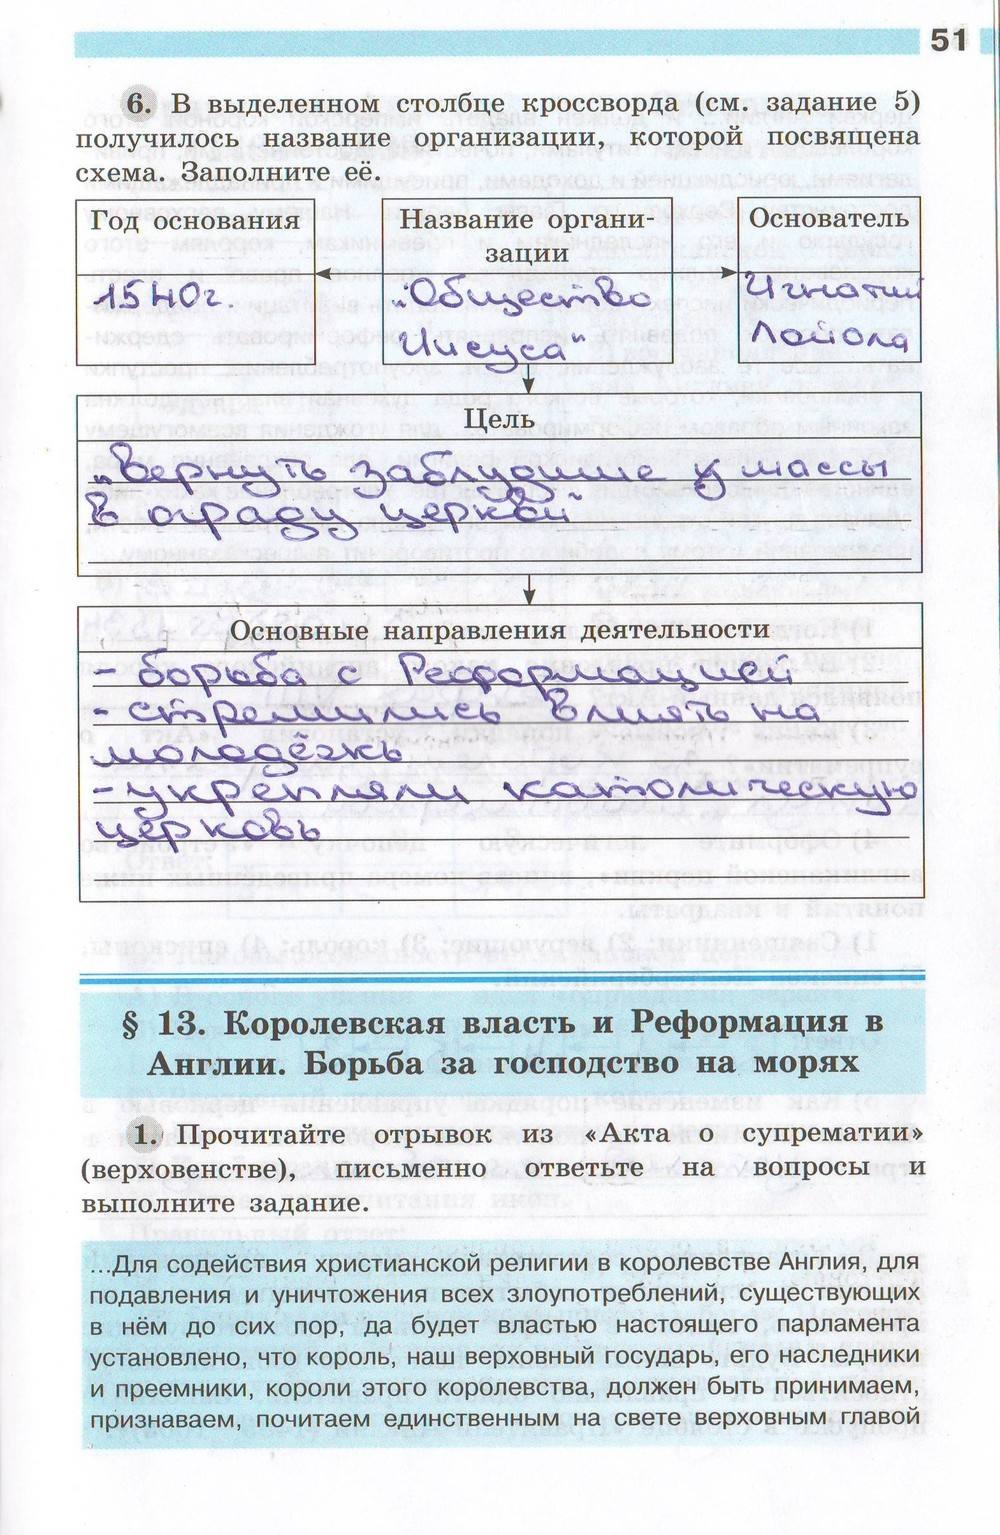 51
6. В выделенном столбце кроссворда (см. задание 5)
получилось название организации, которой посвящена
схема. Заполните её.
Год основания
1540г.
Название органи-
зации
"Общество
Иисуса"
Основатель
Игнатий
Лойола
Цель
"Вернуть заблудшие массы
в ограду церкви"
Основные направления деятельности
- борьба с Реформацией
- стремились влиять на
молодёжь
- укрепляли католическую
церковь
§ 13. Королевская власть и Реформация в
Англии. Борьба за господство на морях
1. Прочитайте отрывок из «Акта о супрематии»
(верховенстве), письменно ответьте на вопросы и
выполните задание.
...Для содействия христианской религии в королевстве Англия, для
подавления и уничтожения всех злоупотреблений, существующих
в нём до сих пор, да будет властью настоящего парламента
установлено, что король, наш верховный государь, его наследники
и преемники, короли этого королевства, должен быть принимаем,
признаваем, почитаем единственным на свете верховным главой